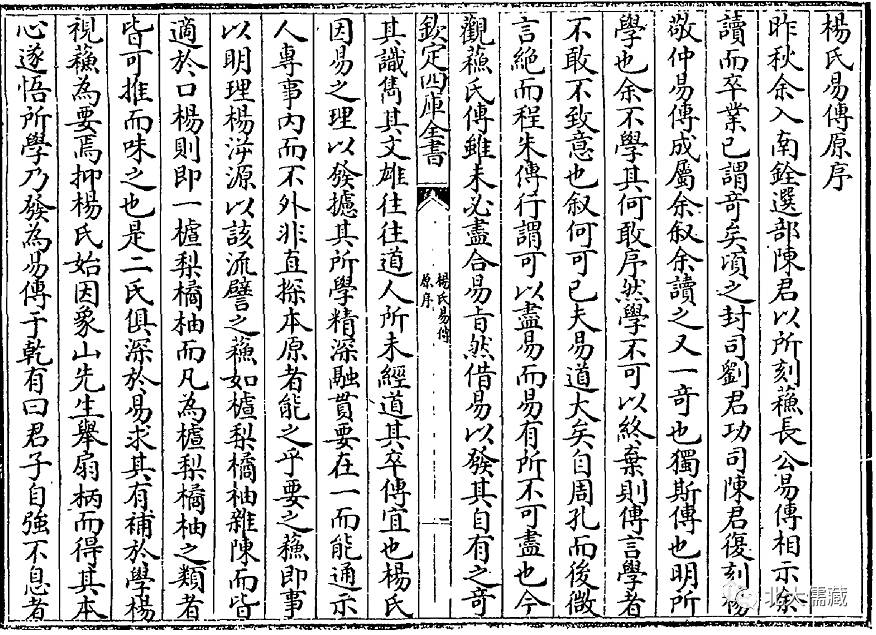 楊氏易傳原序
昨秋余入南銓選部陳君以所刻蘓長公易傳相示余
讀而卒業已謂竒矣頃之封司劉君功司陳君復刻楊
敬仲易傳成屬余叙余讀之又一竒也獨斯傳也明所
學也余不學其何敢序然學不可以終棄則傳言學者
不敢不致意也叙何可已夫易道大矣自周孔而後微
言絶而程朱傳行謂可以盡易而易有所不可盡也今
觀蘓氏傳雖未必盡合易旨然借易以發其自有之竒
欽定四庫全書
楊氏易傳
原序
一
其識雋其文雄往往道人所未經道其卒傳宜也楊氏
因易之理以發攄其所學精深融貫要在一而能通示
人專事内而不外非直探本原者能之乎要之蘓即事
以明理楊泝源以該流譬之蘓如樝梨橘柚雜陳而皆
適於口楊則即一樝梨橘柚而凡為樝梨橘柚之類者
皆可推而味之也是二氏俱深於易求其有補於學楊
視蘓為要焉抑楊氏始因象山先生舉扇柄而得其本
心遂悟所學乃發為易傳于乾有曰君子自強不息者
北大儒藏